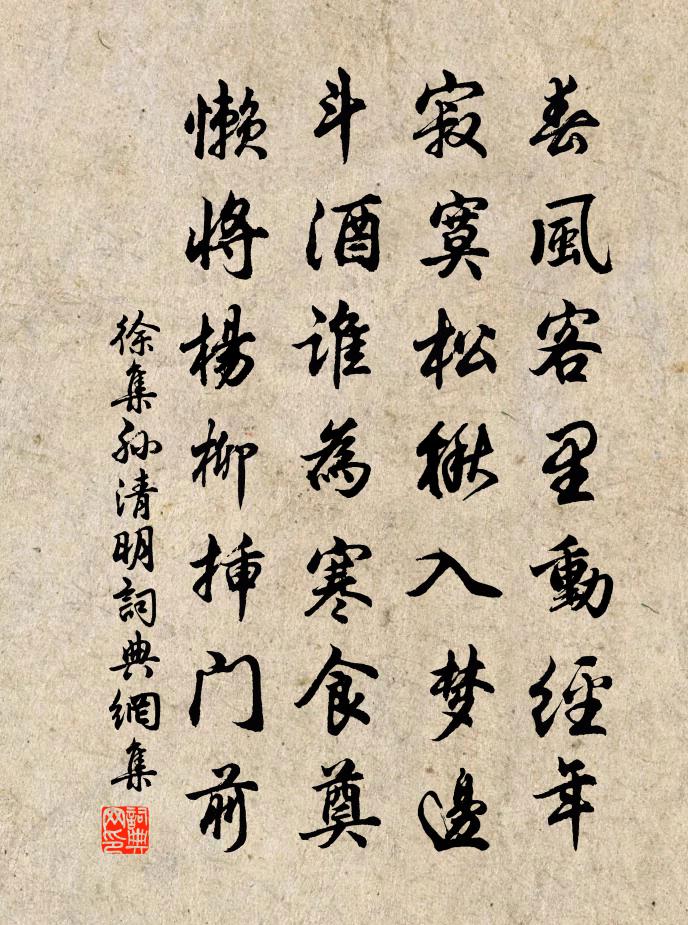 春風客里動經年
寂寞松楸入梦邊
斗酒誰為寒食奠
懶將楊柳揷门前
徐集孙清明詞典網集
詞典
网印